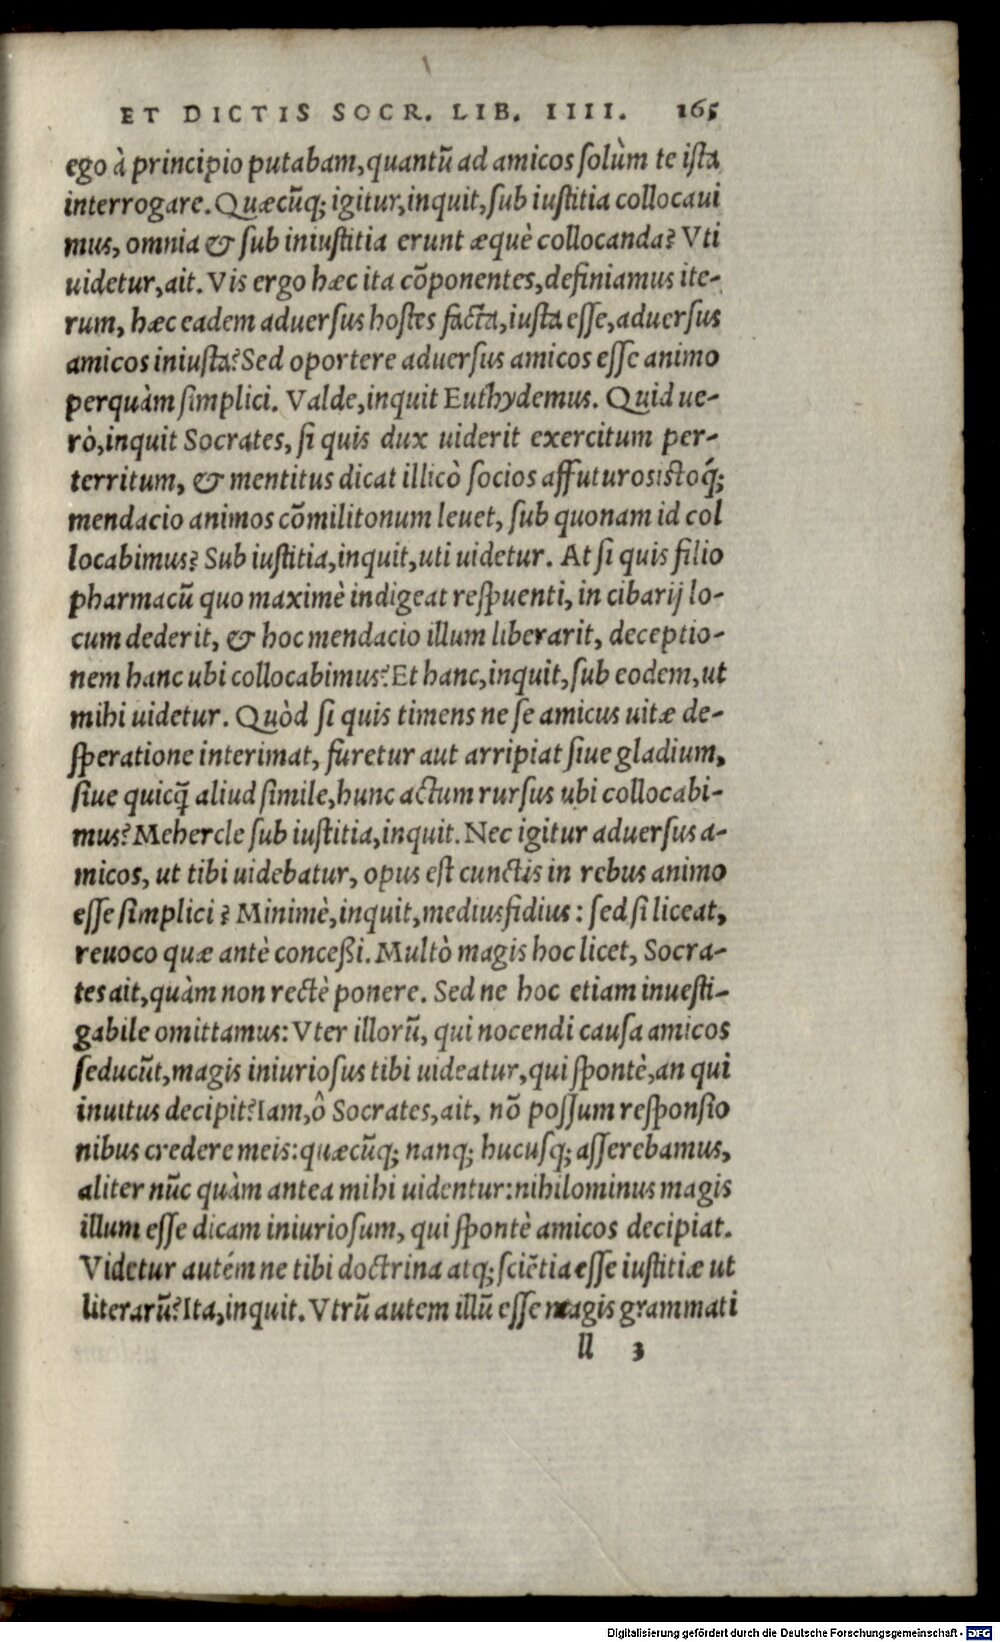 ET DICTIS SOCR. LIB. IIII. 165
ego à principio putabam, quantū ad amicos ſolùm te iſta
interrogare. Quæcūq; igitur, inquit, ſub iuſtitia collocaui
mus, omnia & ſub iniuſtitia erunt æquè collocanda? Vti
uidetur, ait. Vis ergo hæc ita cōponentes, definiamus ite-
rum, hæc eadem aduerſus hoſtes facta, iuſta eſſe, aduerſus
amicos iniuſta? Sed oportere aduerſus amicos eſſe animo
perquàm ſimplici. Valde, inquit Euthydemus. Quid ue-
rò, inquit Socrates, ſi quis dux uiderit exercitum per-
territum, & mentitus dicat illicò ſocios affuturosiſtoq́;
mendacio animos cōmilitonum leuet, ſub quonam id col
locabimus? Sub iuſtitia, inquit, uti uidetur. At ſi quis filio
pharmacū quo maximè indigeat reſpuenti, in cibarij lo-
cum dederit, & hoc mendacio illum liberarit, deceptio-
nem hanc ubi collocabimus? Et hanc, inquit, ſub eodem, ut
mihi uidetur. Quòd ſi quis timens ne ſe amicus uitæ de-
ſperatione interimat, furetur aut arripiat ſiue gladium,
ſiue quicq̃ aliud ſimile, hunc actum rurſus ubi collocabi-
mus? Mehercle ſub iuſtitia, inquit. Nec igitur aduerſus a-
micos, ut tibi uidebatur, opus eſt cunctis in rebus animo
eſſe ſimplici? Minimè, inquit, mediusfidius: ſed ſi liceat,
reuoco quæ antè conceßi. Multò magis hoc licet, Socra-
tes ait, quàm non rectè ponere. Sed ne hoc etiam inueſti-
gabile omittamus: Vter illorū, qui nocendi cauſa amicos
ſeducūt, magis iniurioſus tibi uideatur, qui ſpontè, an qui
inuitus decipit? Iam, ô Socrates, ait, nō poſſum reſponſio
nibus credere meis: quæcūq; nanq; hucuſq; aſſerebamus,
aliter nūc quàm antea mihi uidentur: nihilominus magis
illum eſſe dicam iniurioſum, qui ſpontè amicos decipiat.
Videtur autém ne tibi doctrina atq; ſciētia eſſe iuſtitiæ ut
literarū? Ita, inquit. Vtrū autem illū eſſe magis grammati
ll 3
Digitalisierung gefördert durch die Deutsche Forschungsgemeinschaft - DFG